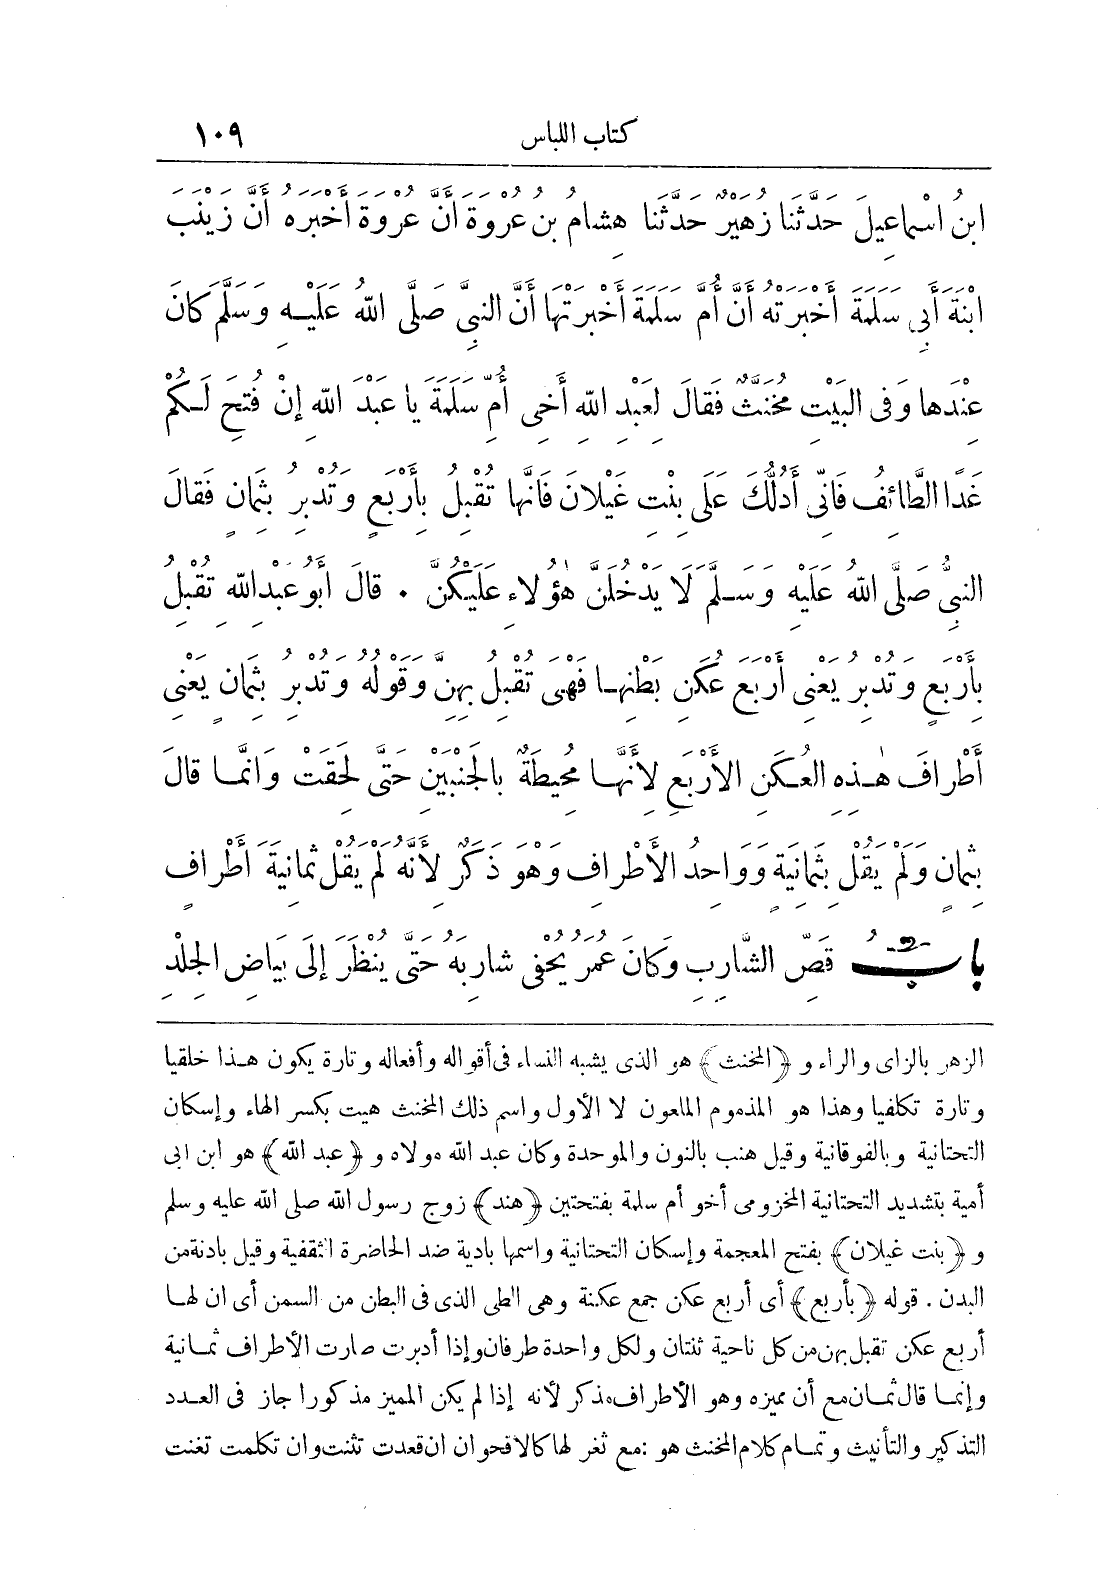 كتاب اللباس ١٠٩
ابنُ اسْماعيلَ حَدَّثَنا زُهَيْرٌ حَدَّثَنا هِشامُ بنُ عُرْوَةَ أَنَّ عُرْوَةَ أَخْبَرَهُ أَنَّ زَيْنَبَ
ابْنَةَ أَبِى سَلَمَةَ أَخْبَرَتْهُ أَنَّ أُمَّ سَلَمَةَ أَخْبَرَتْها أَنَّ النبِىَّ صَلَّى اللهُ عَلَيْهِ وَسَلَّمَ كانَ
عِنْدَها وَفِى البَيْتِ مُخَنَّثٌ فَقالَ لِعَبْدِ اللهِ أَخِى أُمِّ سَلَمَةَ يا عَبْدَ اللهِ إِنْ فُتِحَ لَكُمْ
غَدًا الطَّائِفُ فَانِّى أَدُلُّكَ عَلَى بِنْتِ غَيْلانَ فَانَّها تُقْبِلُ بِأَرْبَعٍ وَتُدْبِرُ بِثَمانٍ فَقالَ
النبىُّ صَلَّى اللهُ عَلَيْهِ وَسَلَّمَ لَا يَدْخُلَنَّ هٰؤُلاءِ عَلَيْكُنَّ . قالَ أَبُو عَبْدِ اللهِ تُقْبِلُ
بِأَرْبَعٍ وَتُدْبِرُ يَعْنِى أَرْبَعَ عُكَنِ بَطْنِها فَهْىَ تُقْبِلُ بِهِنَّ وَقَوْلُهُ وَتُدْبِرُ بِثَمانٍ يَعْنِى
أَطْرافَ هٰذِهِ العُكَنِ الأَرْبَعِ لِأَنَّها مُحِيطَةٌ بِالجَنْبَيْنِ حَتَّى لَحِقَتْ وَانَّما قالَ
بِثَمانٍ وَلَمْ يَقُلْ بِثَمانِيَةٍ وَوَاحِدُ الأَطْرافِ وَهْوَ ذَكَرٌ لِأَنَّهُ لَمْ يَقُلْ ثَمانِيَةَ أَطْرافٍ
بابُ قَصِّ الشَّارِبِ وَكانَ عُمَرُ يُحْفِى شارِبَهُ حَتَّى يُنْظَرَ إِلَى بَيَاضِ الجِلْدِ
الزهر بالزاى والراء و ﴿المخنث﴾ هو الذى يشبه النساء فى أقواله وأفعاله وتارة يكون هذا خلقيا
وتارة تكلفيا وهذا هو المذموم الملعون لا الأول واسم ذلك المخنث هيت بكسر الهاء وإسكان
التحتانية وبالفوقانية وقيل هنب بالنون والموحدة وكان عبد الله مولاه و ﴿عبد الله﴾ هو ابن ابى
أمية بتشديد التحتانية المخزومى أخو أم سلمة بفتحتين ﴿هند﴾ زوج رسول الله صلى الله عليه وسلم
و ﴿بنت غيلان﴾ بفتح المعجمة وإسكان التحتانية واسمها بادية ضد الحاضرة الثقفية وقيل بادنة من
البدن . قوله ﴿بأربع﴾ أى أربع عكن جمع عكنة وهى الطى الذى فى البطن من السمن أى ان لها
أربع عكن تقبل بهن من كل ناحية ثنتان ولكل واحدة طرفان وإذا أدبرت صارت الأطراف ثمانية
وإنما قال ثمان مع أن مميزه وهو الأطراف مذكر لأنه إذا لم يكن المميز مذكورا جاز فى العدد
التذكير والتأنيث وتمام كلام المخنث هو : مع ثغر لها كالاقحوان ان قعدت تثنت وان تكلمت تغنت